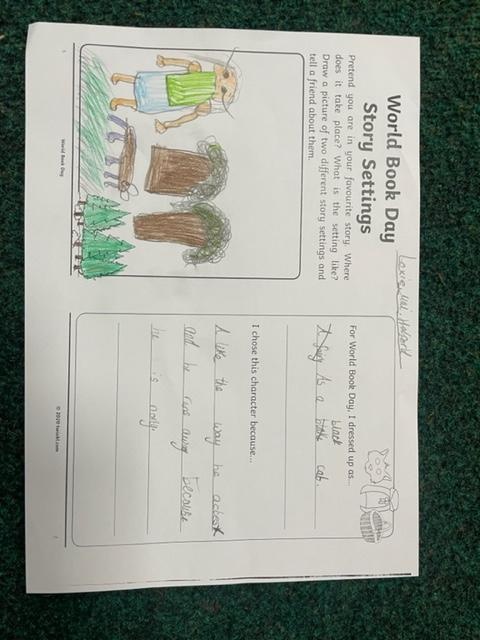 World Book Day
Story Settings
Pretend you are in your favourite story. Where
does it take place? What is the setting like?
Draw a picture of two different story settings and
tell a friend about them.
World Book Day
For World Book Day, I dressed up as...
black
is a cat.
I chose this character because...
I like the way he acts
and he runs away because
he is
© 2020 twinkl.com